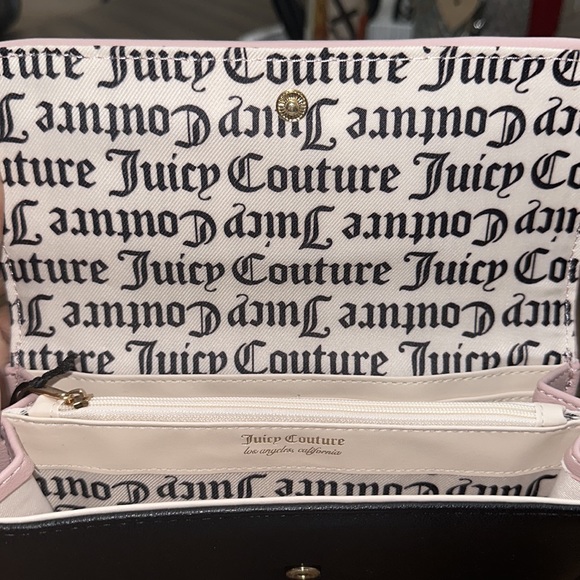 uture Juicy Couture Juicy Couture
Juicy Couture Juicy Couture
uture Juicy Couture Juicy Cou
Juicy Couture Juicy
uture Juicy Couture Juicy Cou
Juicy Couture Juicy Couture
uture Juicy Couture Juicy Cou
Juicy Couture
los angeles, california
Juicy Couture Juicy Couture